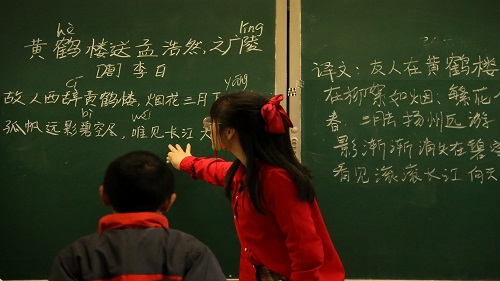 hè líng
黄鹤楼送孟浩然之广陵
[唐] 李白
cí yáng
故人西辞黄鹤楼，烟花三月下
bì wéi
孤帆远影碧空尽，唯见长江天
译文：友人在黄鹤楼
在柳絮如烟、繁花
春，三月 扬州远游
影渐渐消失在碧空
看见滚滚长江向天